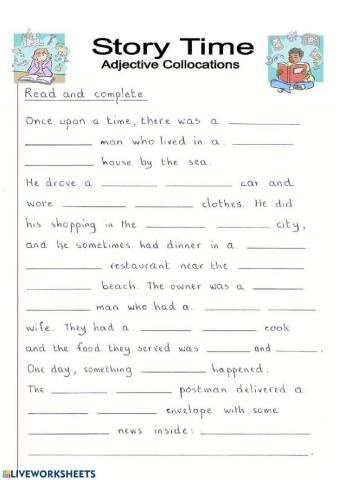 Story Time
Adjective Collocations
Read and complete.
Once upon a time, there was a __________
__________ man who lived in a __________
__________ house by the sea.
He drove a __________ __________ car and
wore __________ __________ clothes. He did
his shopping in the __________ __________ city,
and he sometimes had dinner in a __________
__________ restaurant near the __________
__________ beach. The owner was a __________
__________ man who had a __________ __________
wife. They had a __________ __________ cook
and the food they served was __________ and __________.
One day, something __________ happened.
The __________ __________ postman delivered a
__________ __________ envelope with some
__________ __________ news inside: __________
__________
LIVEWORKSHEETS